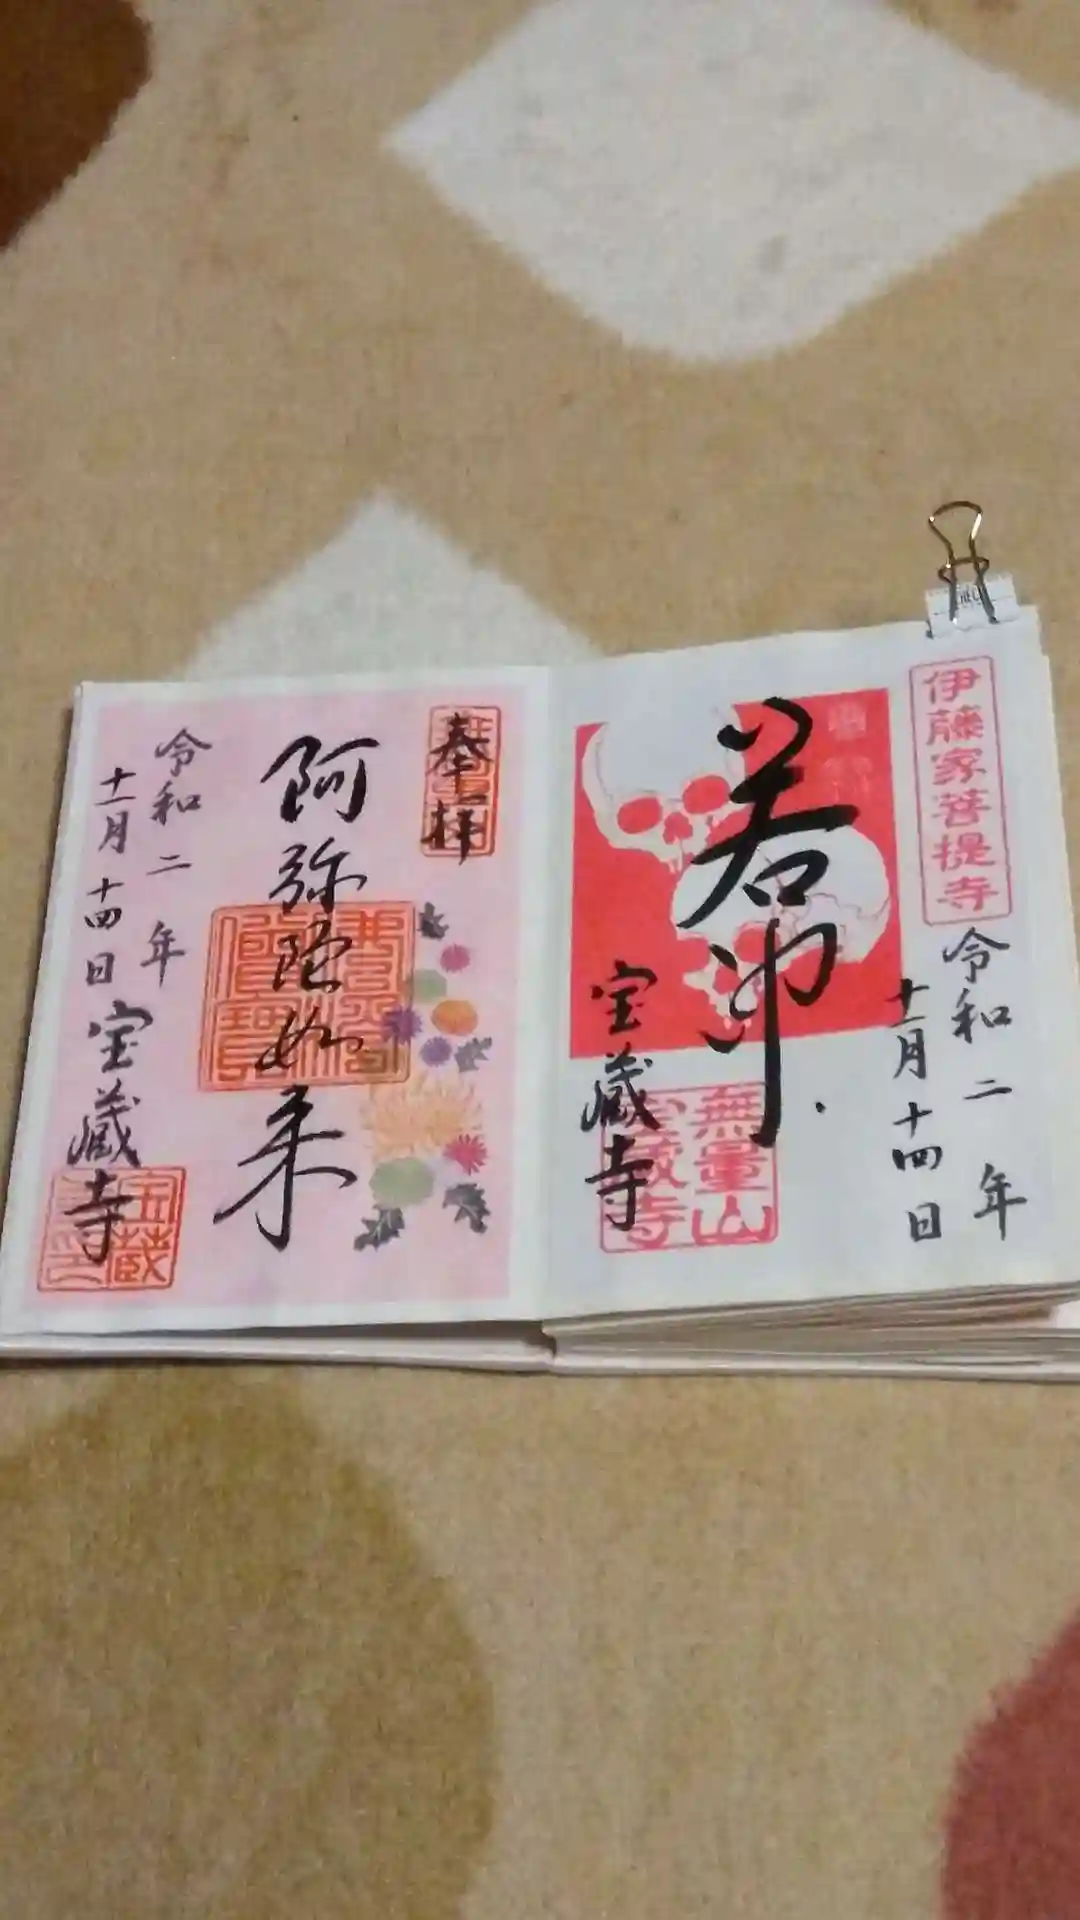 伊藤家菩提寺
令和二年
十一月十四日
若冲
宝蔵寺
無量山
宝蔵寺
奉拝
阿弥陀如来
令和二年
十一月十四日
宝蔵寺